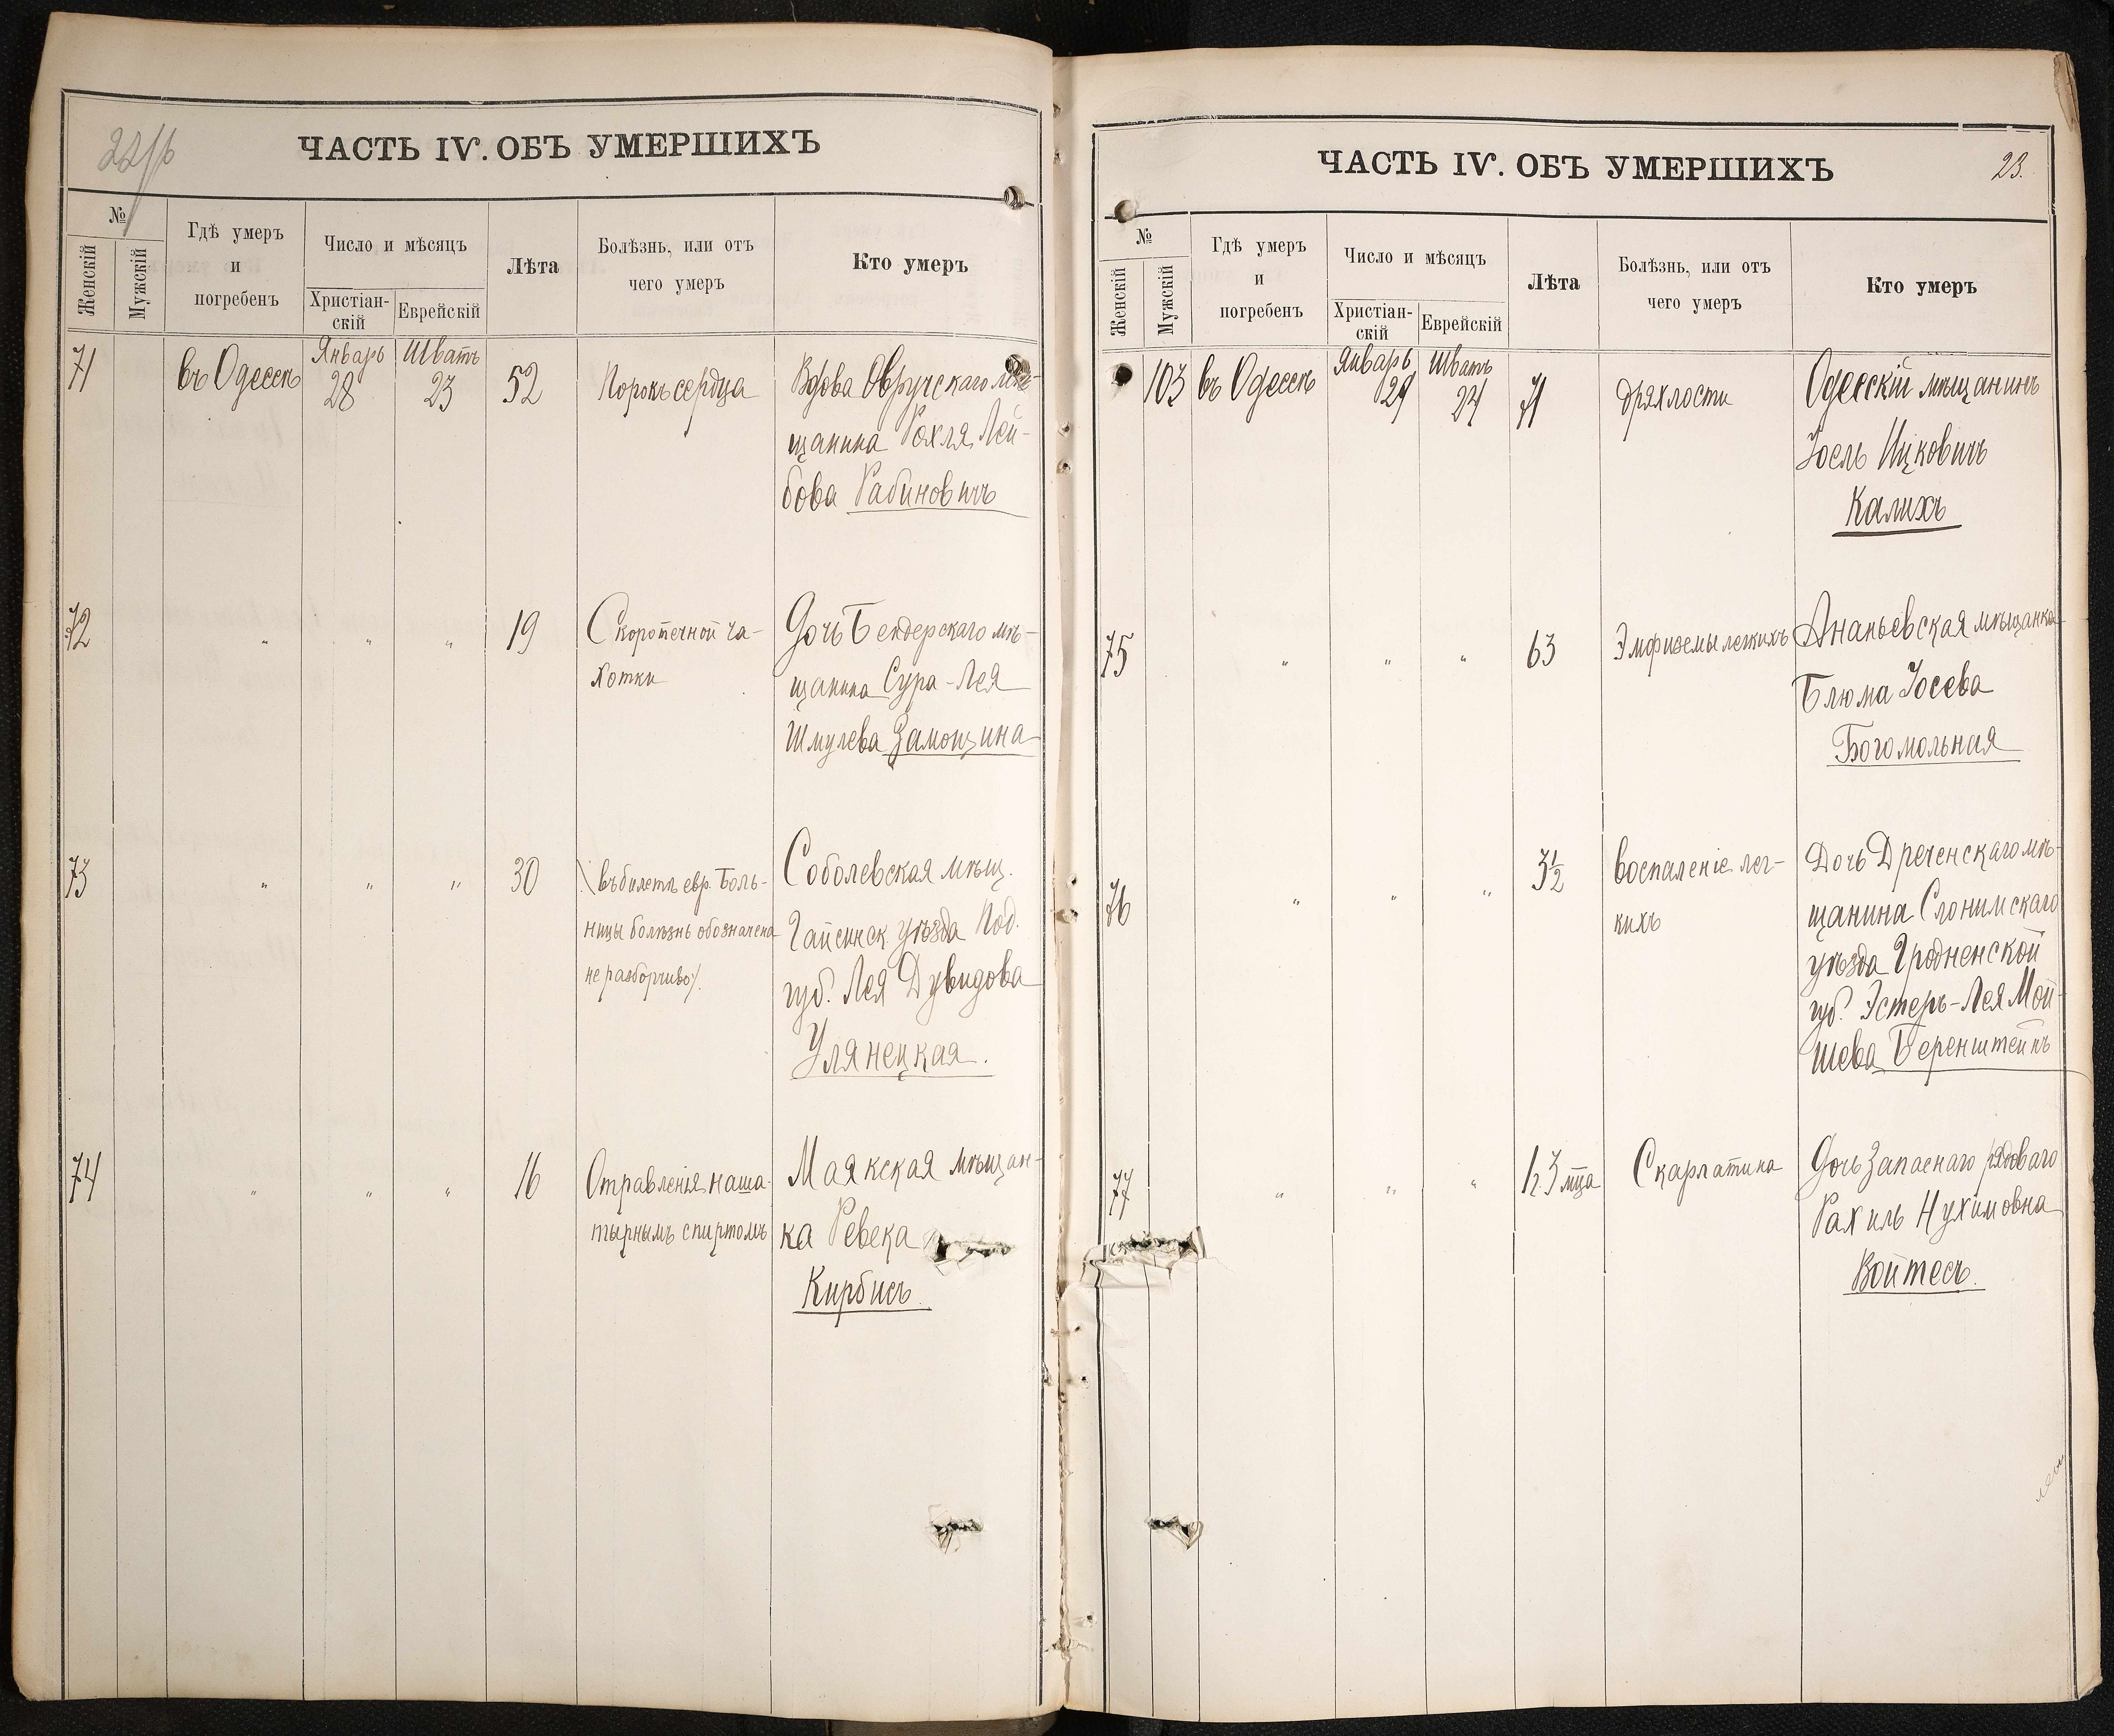 22/b
ЧАСТЬ IV. ОБЪ УМЕРШИХЪ
№
Женскій
Мужскій
Гдѣ умеръ
и
погребенъ
Число и мѣсяцъ
Христіан-
скій
Еврейскій
Лѣта
Болѣзнь, или отъ
чего умеръ
Кто умеръ
71 въ Одессѣ Январь 28 Шватъ 23 52 Порокъ сердца Вдова Овручскаго мѣ-
щанина Рохля Лей-
бова Рабиновичъ
72 " " " 19 Скоротечной ча- Дочь Бендерскаго мѣ-
хотки щанина Сура-Лея
Шмулева Замощина
73 " " " 30 (въ билетѣ евр. Боль- Соболевская мѣщ.
ницы болѣзнь обозначена Гайсинск. уѣзда Под.
не разборчиво). губ. Лея Дувидова
Улянецкая.
74 " " " 16 Отравленія наша- Маякская мѣщан-
тырнымъ спиртомъ ка Ревека
Кирбисъ
ЧАСТЬ IV. ОБЪ УМЕРШИХЪ
23.
№
Женскій
Мужскій
Гдѣ умеръ
и
погребенъ
Число и мѣсяцъ
Христіан-
скій
Еврейскій
Лѣта
Болѣзнь, или отъ
чего умеръ
Кто умеръ
103 въ Одессѣ Январь 29 Шватъ 24 71 дряхлости Одесскій мѣщанинъ
Іосль Ицковичъ
Калихъ
75 " " " 63 Эмфиземы легкихъ Ананьевская мѣщанка
Блюма Іосева
Богомольная
76 " " " 3½ воспаленіе лег- Дочь Дреченскаго мѣ-
кихъ щанина Слонимскаго
уѣзда Гродненской
губ. Эстеръ-Лея Мой-
шева Беренштейнъ
77 " " " 3 мца Скарлатина Дочь Запаснаго рядоваго
Рахиль Нухимовна
Войтесъ.